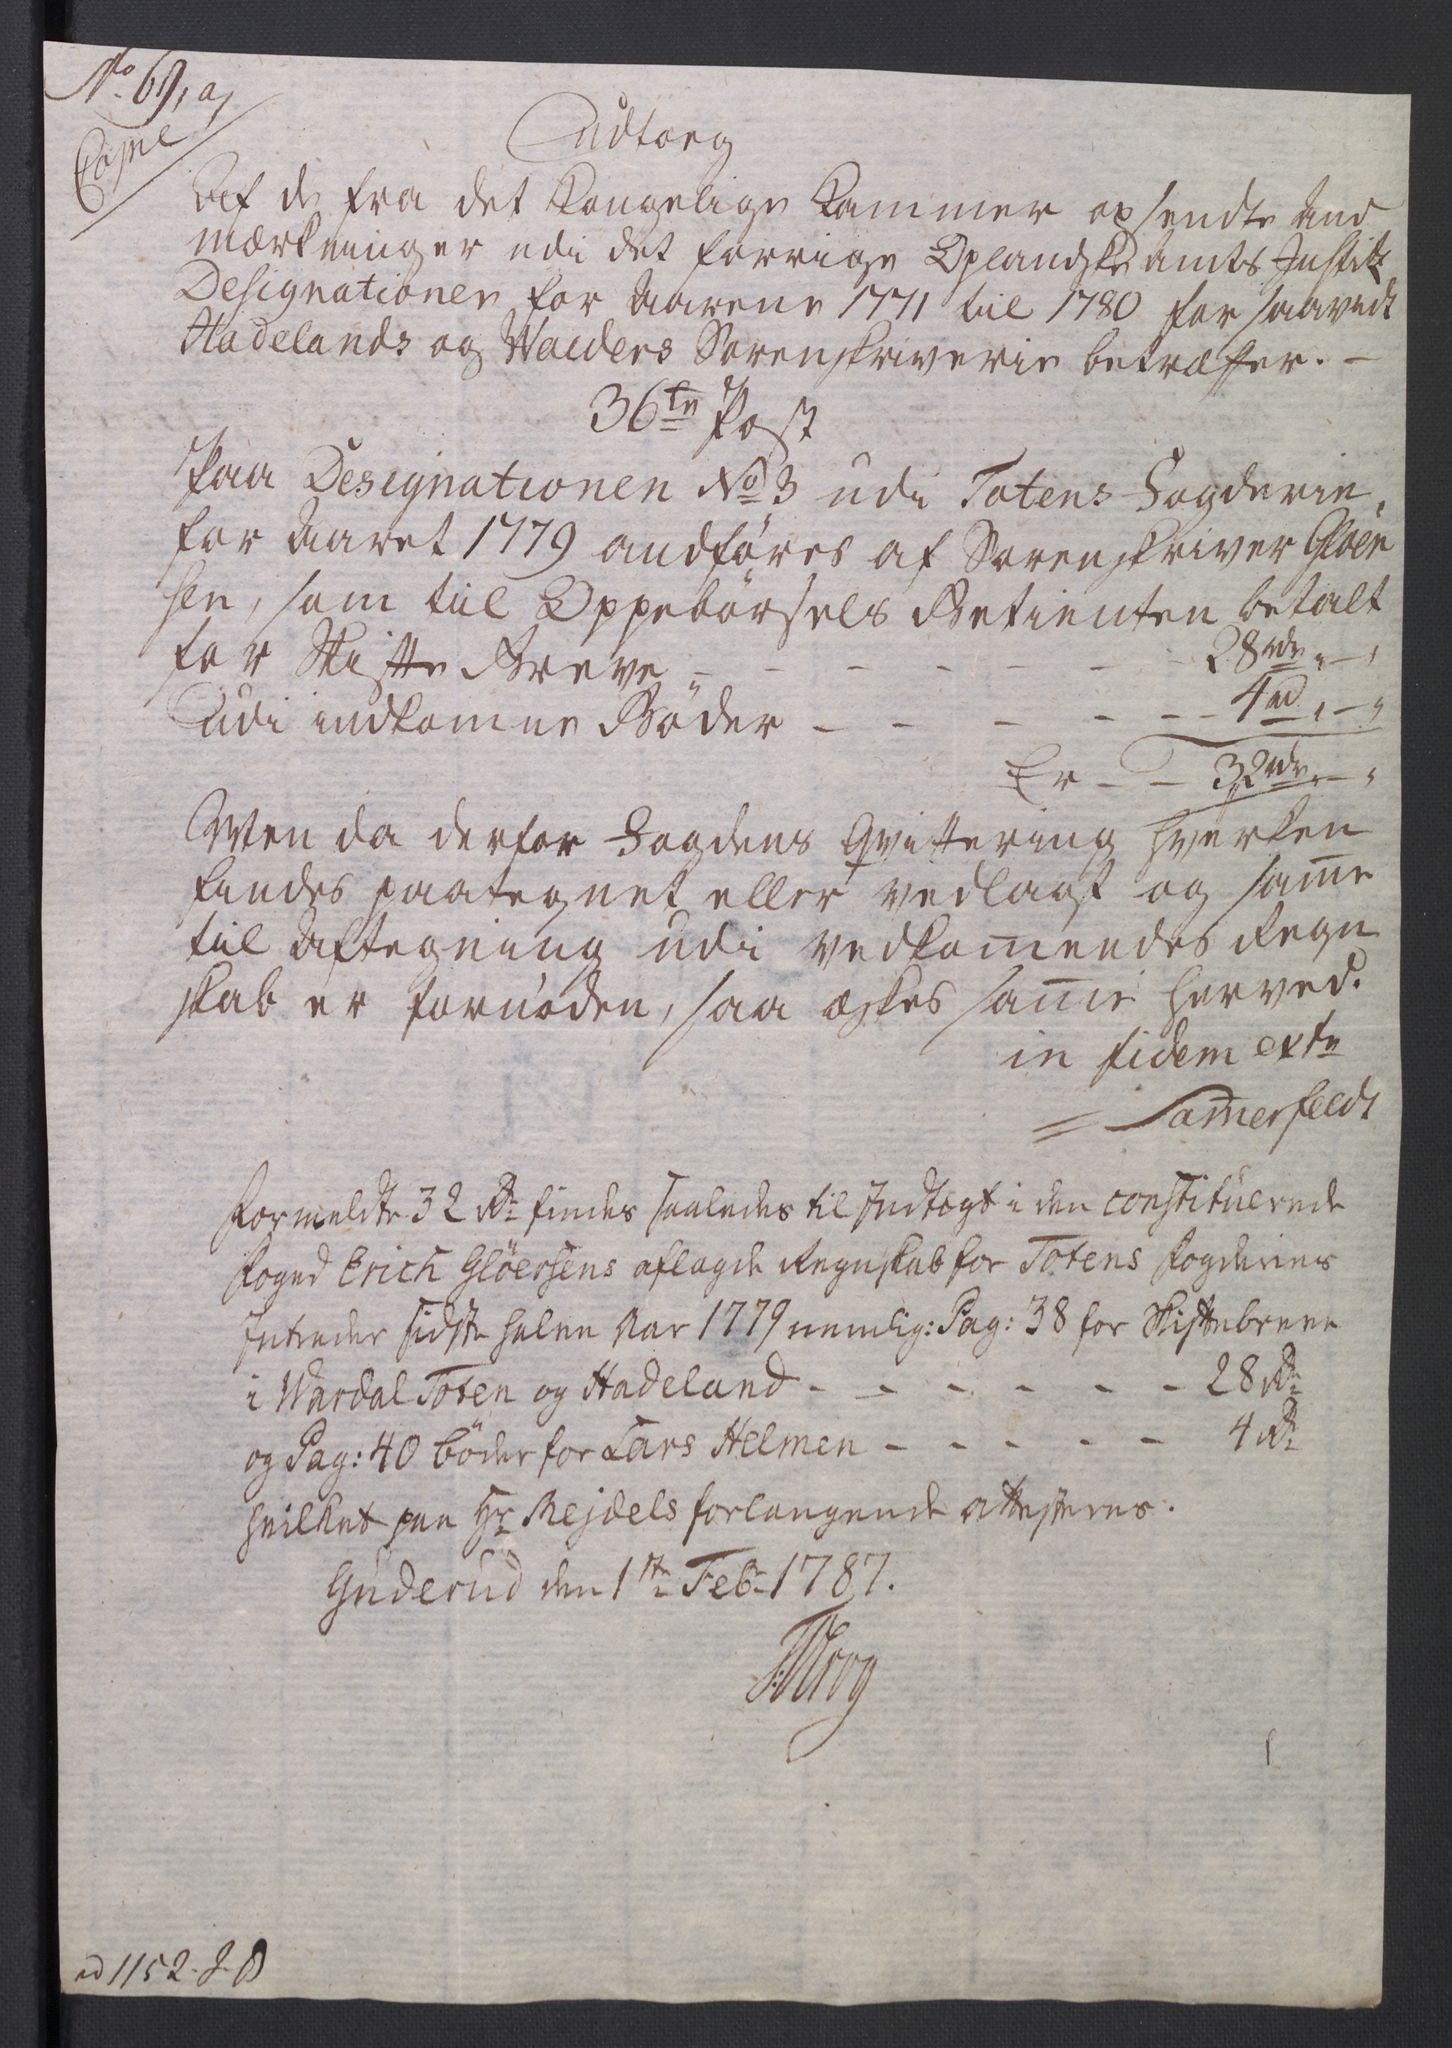 No 69, a,
Copie
Udtog
Af de fra det Kongelige Kammer opsendte And
mærkninger udi det forrige Oplandske Amts Justitz
Designationer for Aarene 1771 til 1780 for saavidt
Hadelands og Walders Sorenskriverie betræffer. -
36te Post
Paa Designationen No 3 udi Totens Fogderie,
for Aaret 1779 andføres af Sorenskriver Gløer
sen, som til Oppebørsels Betienten betalt
for Skifte Breve - - - - - - - 28 rdr „ - „
Udi indkomne Bøder - - - - - - 4 rd „ - „
Er - - 32 rdr „ - „
Men da derfor Fogdens Qvittering hverken
findes paategnet eller vedlagt og samme
til Aftegning udi vedkommendes Regn
skab er fornøden, saa æskes samme herved.
in fidem exte
= Samerfeldt
Formeldte 32 Rd findes saaledes til Indtægt i den constituerede
Foged Erich Gløersens aflagde Regnskab for Totens Fogderies
Intrader sidste halve Aar 1779 nemlig: Pag: 38 for Skiftebreve
i Wardal Toten og Hadeland - - - - - - - 28 Rd
og Pag: 40 bøder for Lars Helmen - - - - - 4 Rd
hvilket paa Hr Rejdels forlangende attesteres.
Guderud den 1ste Febr 1787.
ad 1152